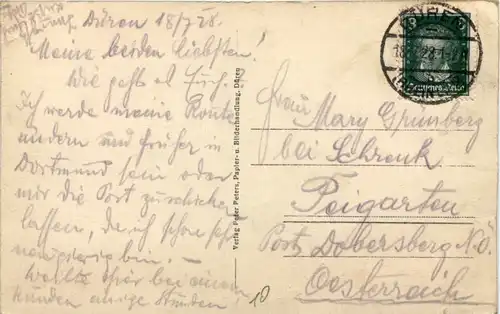 Düren 18/7 28.
Meine beiden Liebsten!
Wie geht es Euch.
Ich werde meine Route
ändern und früher in
Dortmund sein oder
mir die Post zuschicken
lassen, da ich schon sehr
neugierig bin. –
Wollte hier bei einem
Kunden einige Stunden
Verlag Peter Peters, Papier- u. Bilderhandlung, Düren
Deutsches Reich
Frau
Mary Grünberg
bei Schrenk
Peigarten
Post Dobersberg N.Ö.
Oesterreich
10